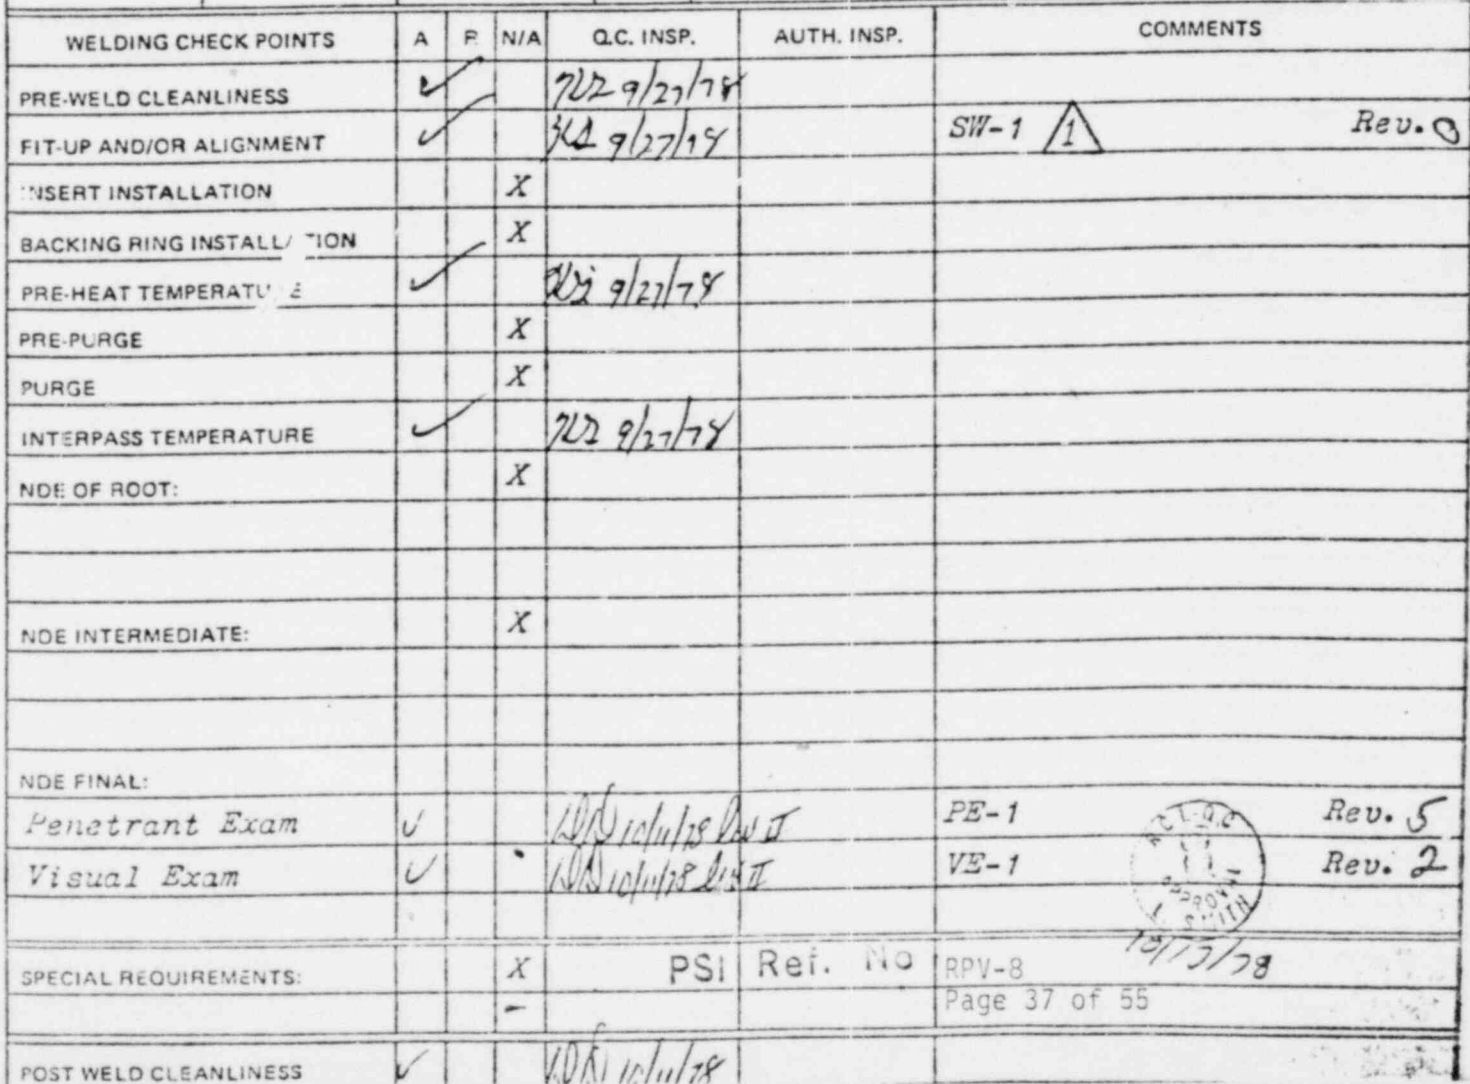 WELDING CHECK POINTS A R N/A Q.C. INSP. AUTH. INSP. COMMENTS
PRE-WELD CLEANLINESS ✓ 9/27/78
FIT-UP AND/OR ALIGNMENT ✓ 9/27/78 SW-1 1 Rev. 0
INSERT INSTALLATION X
BACKING RING INSTALLATION X
PRE-HEAT TEMPERATURE ✓ 9/27/78
PRE-PURGE X
PURGE X
INTERPASS TEMPERATURE ✓ 9/27/78
NDE OF ROOT: X
NDE INTERMEDIATE: X
NDE FINAL:
Penetrant Exam ✓ 10/11/78 Lev II PE-1 Rev. 5
Visual Exam ✓ 10/11/78 Lev II VE-1 Rev. 2
APPROVAL
T. SMITH
SPECIAL REQUIREMENTS: X PSI Ref. No RPV-8
- Page 37 of 55
POST WELD CLEANLINESS ✓ 10/11/78